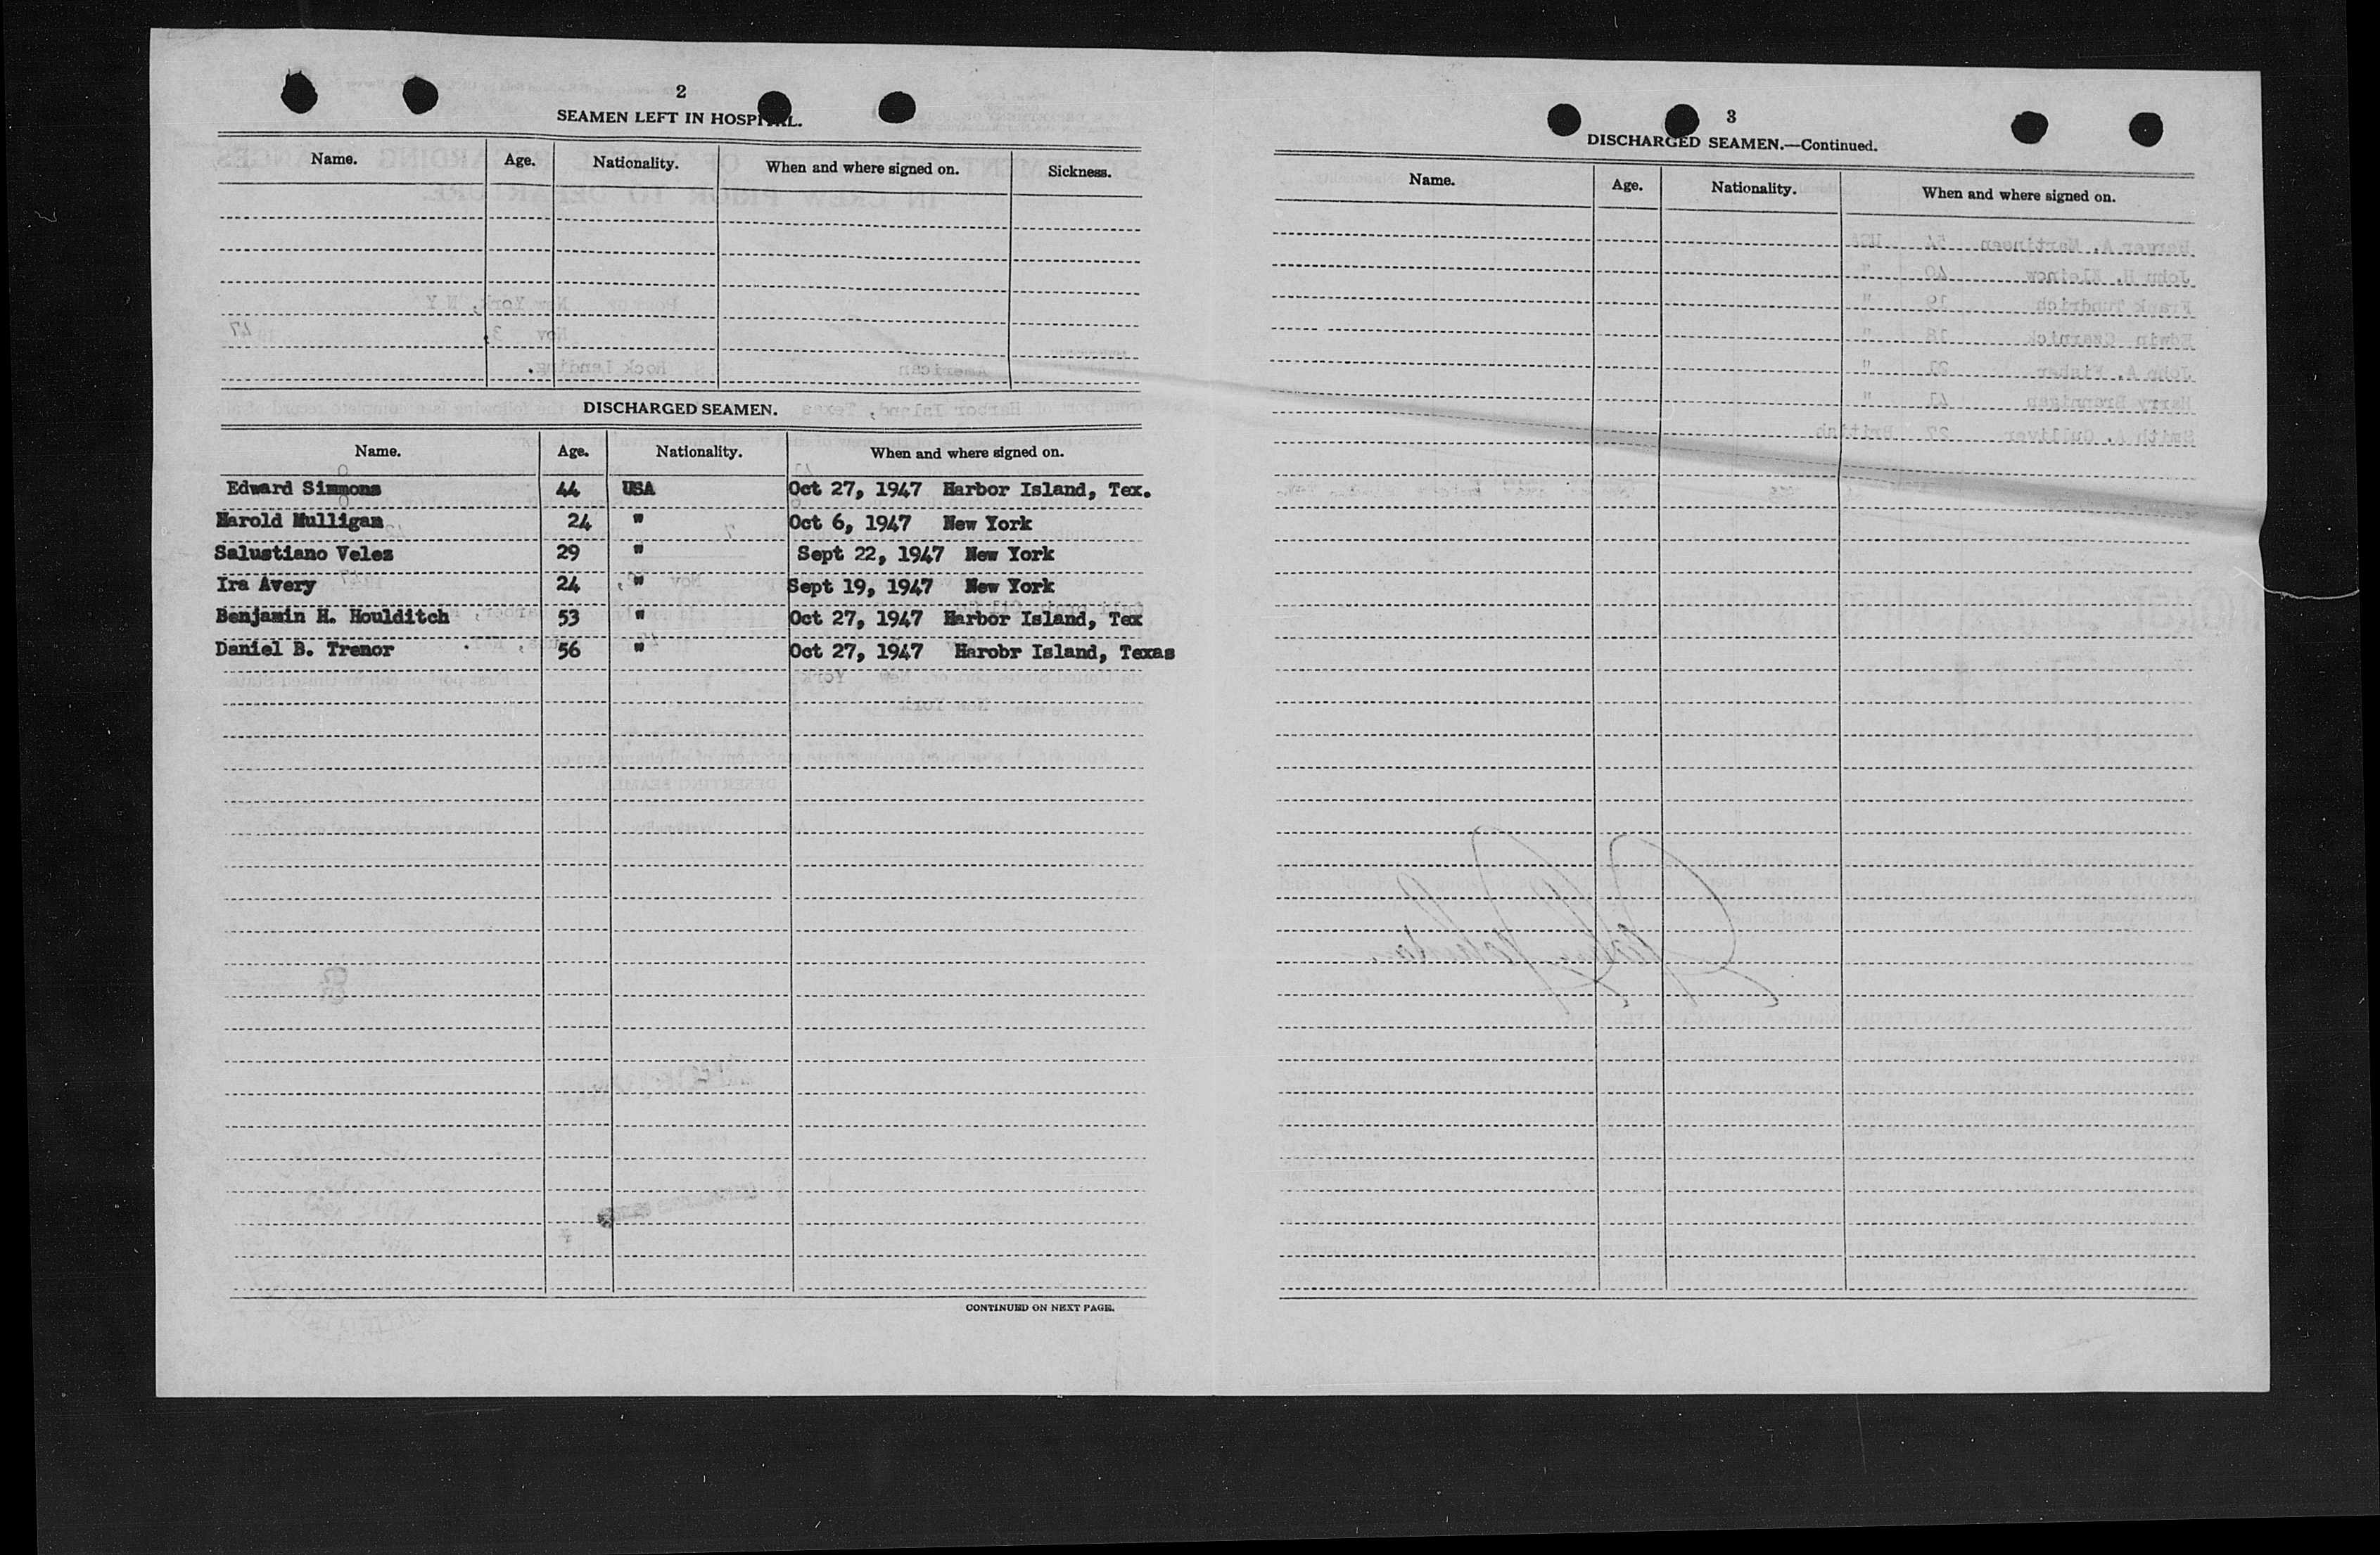 2
SEAMEN LEFT IN HOSPITAL.
Name. Age. Nationality. When and where signed on. Sickness.
DISCHARGED SEAMEN.
Name. Age. Nationality. When and where signed on.
Edward Simmons 44 USA Oct 27, 1947 Harbor Island, Tex.
Harold Mulligan 24 " Oct 6, 1947 New York
Salustiano Velez 29 " Sept 22, 1947 New York
Ira Avery 24 " Sept 19, 1947 New York
Benjamin H. Houlditch 53 " Oct 27, 1947 Harbor Island, Tex
Daniel B. Trenor 56 " Oct 27, 1947 Harobr Island, Texas
CONTINUED ON NEXT PAGE.
3
DISCHARGED SEAMEN.—Continued.
Name. Age. Nationality. When and where signed on.